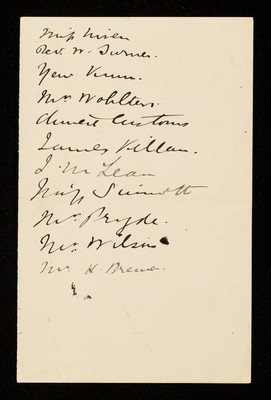 Miss Niven
Rev. W. Turner.
Yew Kum.
Mr. Wohlters.
Chinese Customs
James Killan.
J. McLean
Miss Sinnott
Mr. Pryde.
Mr. Wilson
Mr. H. Brewer